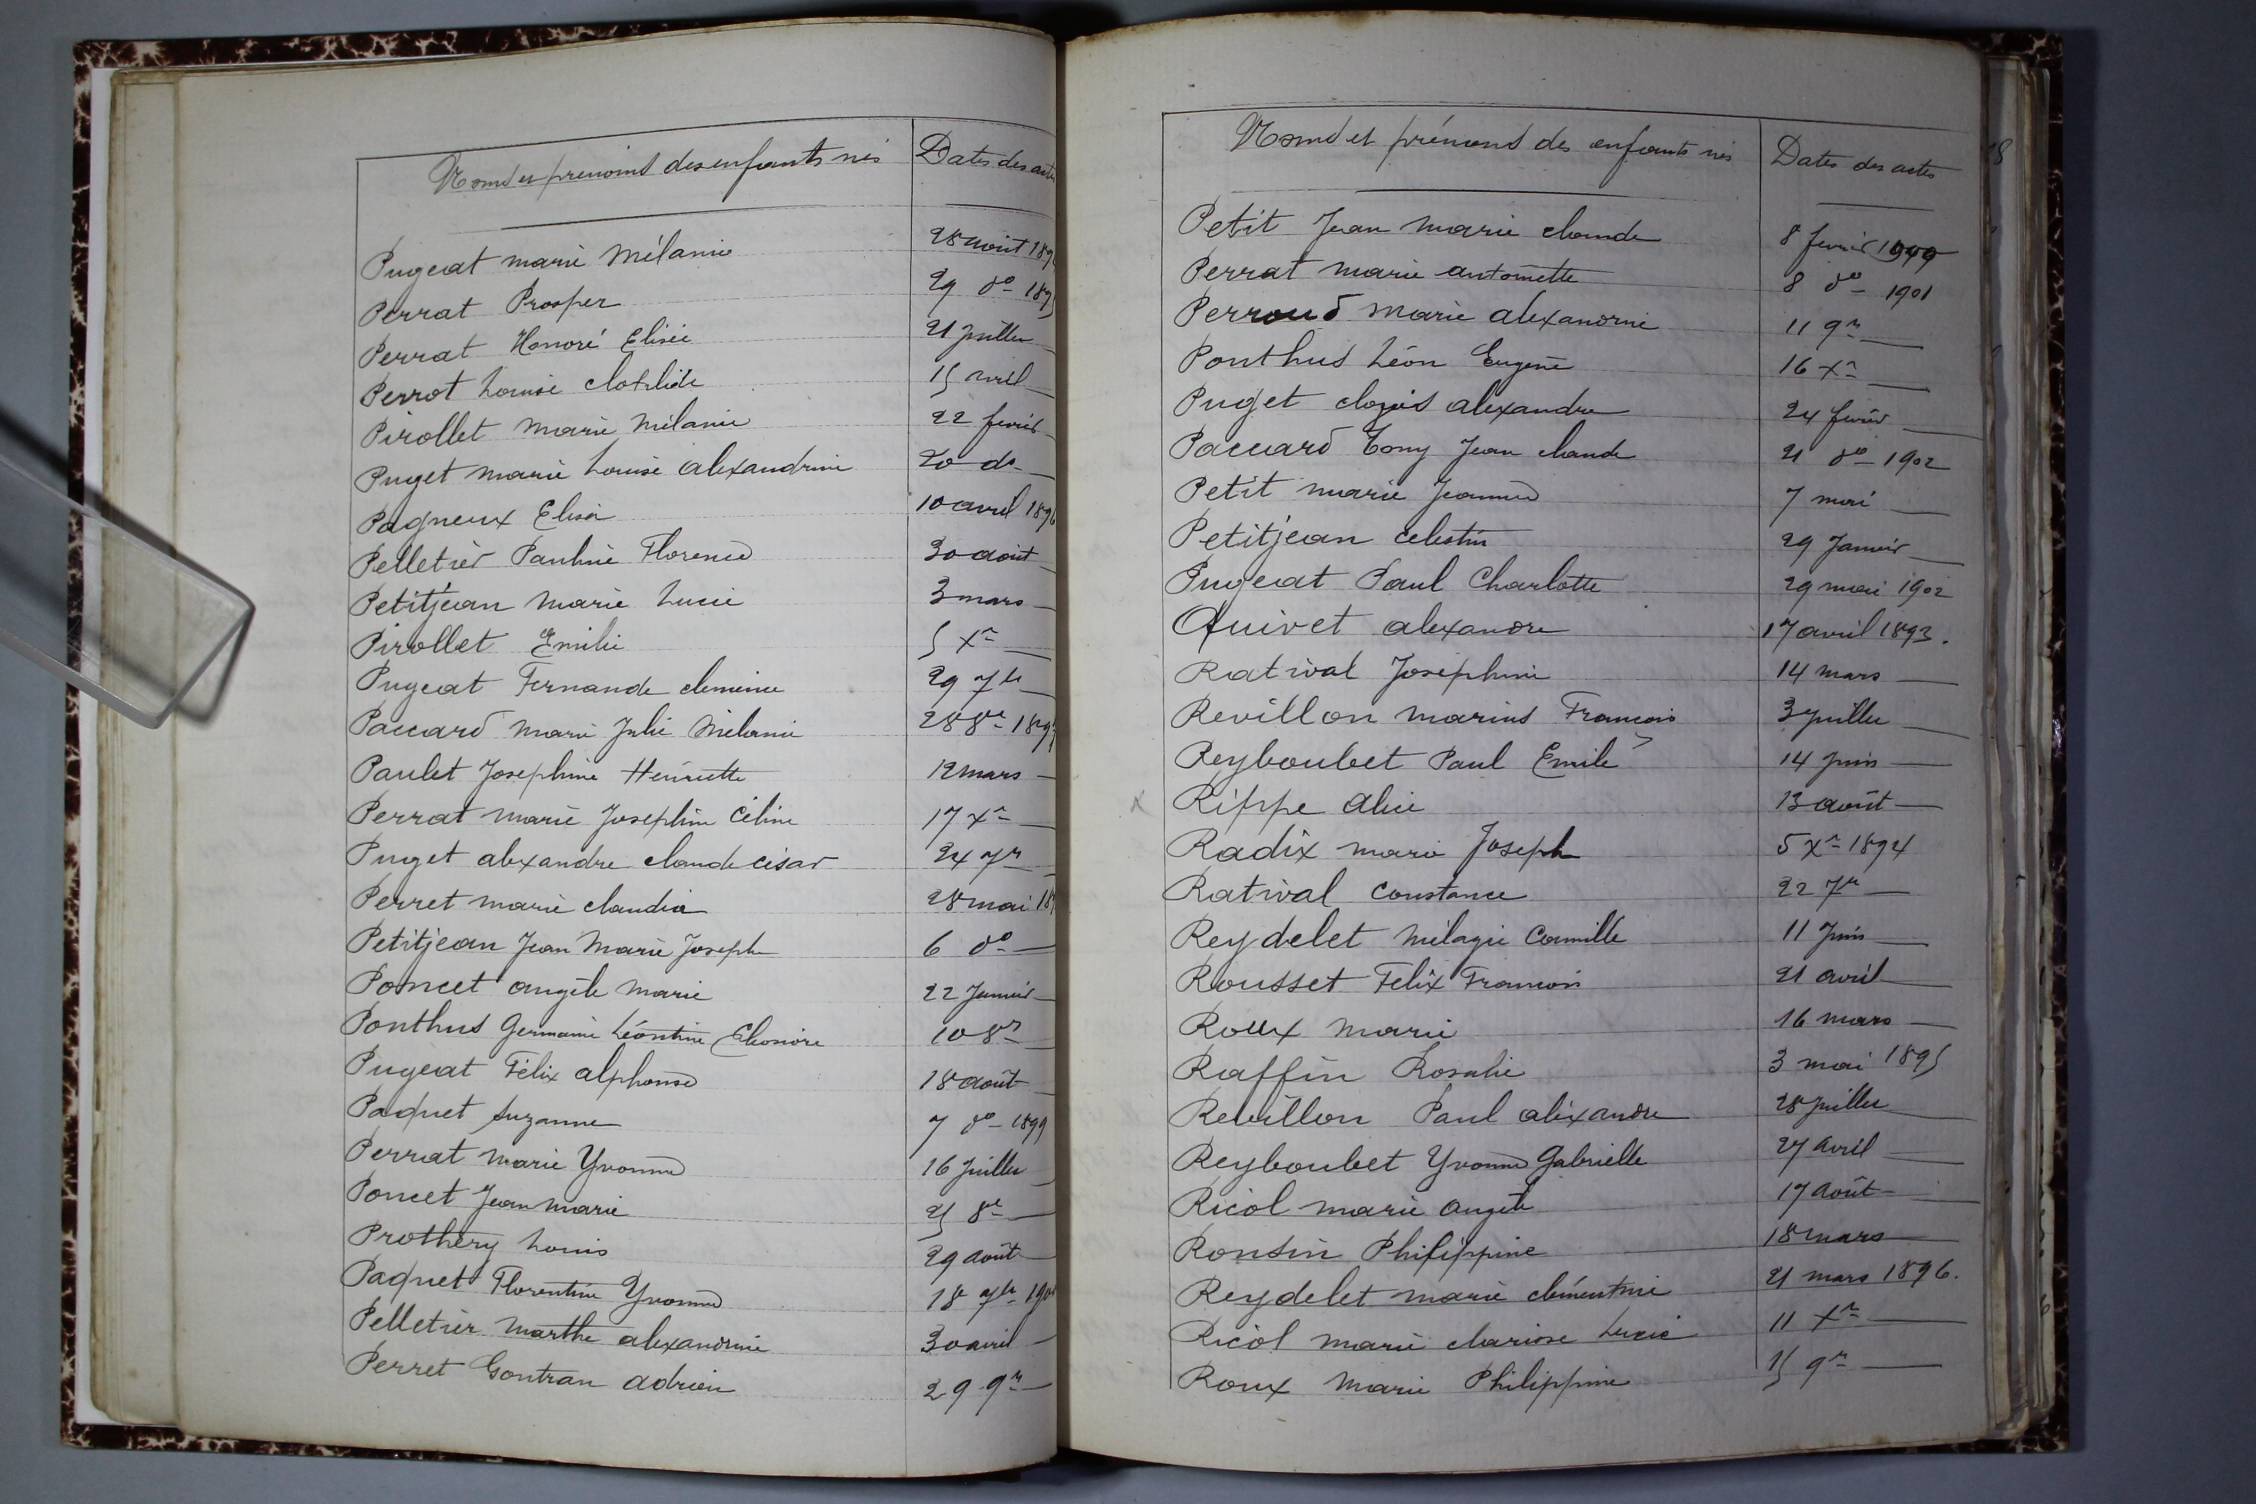 Noms et prénoms des enfants nés Dates des actes
Pugeat marie Mélanie 28 août 189
Perrat Prosper 29 do 1895
Perrat Honoré Elisée 21 juillet
Perrot Louise clotilde 15 avril
Pirollet marie Mélanie 22 février
Puget marie Louise alexandrine 20 do
Pagneux Elisa 10 avril 1896
Pelletier Pauline Florence 30 août
Petitjean Marie Lucie 3 mars
Pirollet Emilie 5 Xre
Pugeat Fernande clemence 29 7bre
Paccard Marie Julie Mélanie 28 8re 1897
Paulet Josephine Henriette 12 mars
Perrat Marie Josephine Céline 17 Xre
Puget alexandre claude césar 24 7re
Perret marie claudia 28 mai 18
Petitjean Jean Marie Joseph 6 do
Poncet angèle Marie 22 Janvier
Ponthus Germaine Léontine Eléonore 10 8re
Pugeat Félix alphonse 18 août
Paquet Suzanne 7 do 1899
Perrat Marie Yvonne 16 juillet
Poncet Jean marie 25 8re
Prothery Louis 29 août
Paquet Florentine Yvonne 18 7bre 190
Pelletier Marthe alexandrine 30 avril
Perret Gontran adrien 29 9re
Noms et prénoms des enfants nés Dates des actes 18
Petit Jean Marie claude 8 fevrier
Perrat marie antoinette 8 do 1901
Perroud Marie alexandrine 11 9re
Ponthus Léon Eugène 16 Xre
Puget clovis alexandre 24 février
Paccard Tony Jean claude 21 do 1902
Petit marie Jeanne 7 mai
Petitjean celestin 29 Janvier
Pugeat Paul Charlotte 29 mai 1902
Quivet alexandre 17 avril 1893.
Ratival Josephine 14 mars
Revillon Marius François 3 juillet
Reyboubet Paul Emile 14 juin
Rippe alice 13 août
Radix marie Joseph 5 Xre 1894
Ratival Constance 22 7re
Reydelet Mélagie Camille 11 Juin
Rousset Felix François 21 avril
Roux Marie 16 mars
Raffin Rosalie 3 mai 1895
Revillon Paul alexandre 28 juillet
Reyboubet Yvonne Gabrielle 27 avril
Ricol marie angèle 17 août
Ronsin Philippine 18 mars
Reydelet marie clémentine 21 mars 1896.
Ricol marie Lucie 11 Xre
Roux Marie Philippine 15 9re